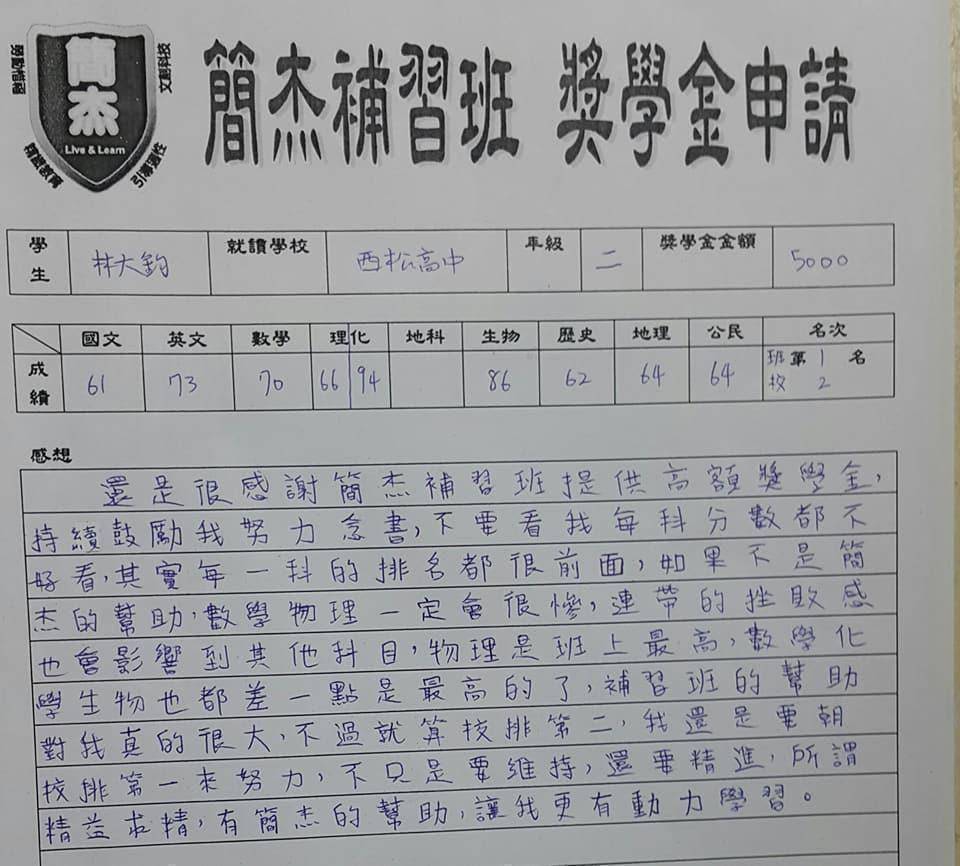 簡杰
Live & Learn
勞動楷模
文創科技
精緻教育
引導適性
簡杰補習班 獎學金申請
學生 林大鈞 就讀學校 西松高中 年級 二 獎學金金額 5000
國文 英文 數學 理化 地科 生物 歷史 地理 公民 名次
成績 61 73 70 66 94 86 62 64 64 班第1名
校 2
感想
還是很感謝簡杰補習班提供高額獎學金,
持續鼓勵我努力念書,不要看我每科分數都不
好看,其實每一科的排名都很前面,如果不是簡
杰的幫助,數學物理一定會很慘,連帶的挫敗感
也會影響到其他科目,物理是班上最高,數學化
學生物也都差一點是最高的了,補習班的幫助
對我真的很大,不過就算校排第二,我還是要朝
校排第一來努力,不只是要維持,還要精進,所謂
精益求精,有簡杰的幫助,讓我更有動力學習。